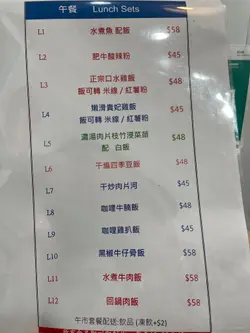 午餐 Lunch Sets
L1 水煮魚 配飯 $58
L2 肥牛酸辣粉 $45
L3 正宗口水雞飯 $48
飯可轉 米線 / 紅薯粉
L4 嫩滑貴妃雞飯 $45
飯可轉 米線 / 紅薯粉
L5 濃湯肉片枝竹浸菜苗 $48
配 白飯
L6 干煸四季豆飯 $48
L7 干炒肉片河 $45
L8 咖喱牛腩飯 $48
L9 咖喱雞扒飯 $45
L10 黑椒牛仔骨飯 $58
L11 水煮牛肉飯 $58
L12 回鍋肉飯 $58
午市套餐配送:飲品 (凍飲+$2)